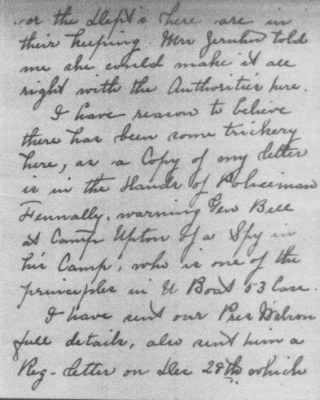 or the Dept's here are in
their keeping. Mrs told
me she could make it all
right with the Authorities here.
I have reason to believe
there has been some trickery
here, as a Copy of my letter
is in the Hands of Policeman
Fennally, warning Gen Bell
at Camp Upton of a Spy in
his Camp, who is one of the
principles in U Boat 53 Case.
I have sent our Pres Wilson
full details, also sent him a
Reg. letter on Dec 28th which